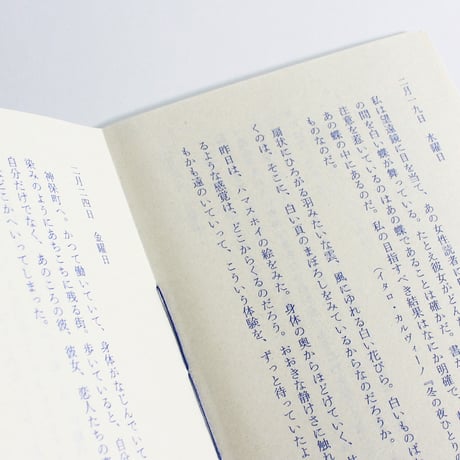 二月一九日　水曜日
私は望遠鏡に目を当て、あの女性読者に
の間を白い蝶が舞っている。たとえ彼女がどん
注意を惹いているのはあの蝶であることは確かだ。書か
あの蝶の中にあるのだ。私の目指すべき結果はなにか明確で、
ものなのだ。
（イタロ・カルヴィーノ『冬の夜ひとりの
扇状にひろがる羽みたいな雲、風にゆれる白い花びら。白いものば
くのは、そこに、白い頁のまぼろしをみているからなのだろうか。
昨日は、ハマスホイの絵をみた。身体の奥からほどけていく、は
るような感覚は、どこからくるのだろう。おおきな静けさに触れ
もかも遠のいていって、こういう体験を、ずっと待っていたよ
二月二四日　金曜日
神保町へ。かつて働いていて、身体がなじんでいて
染みのようにあちこちに残る街。歩いていると、自分
自分だけでなく、あのころの彼、彼女、恋人たちの
はどこかへいってしまった。